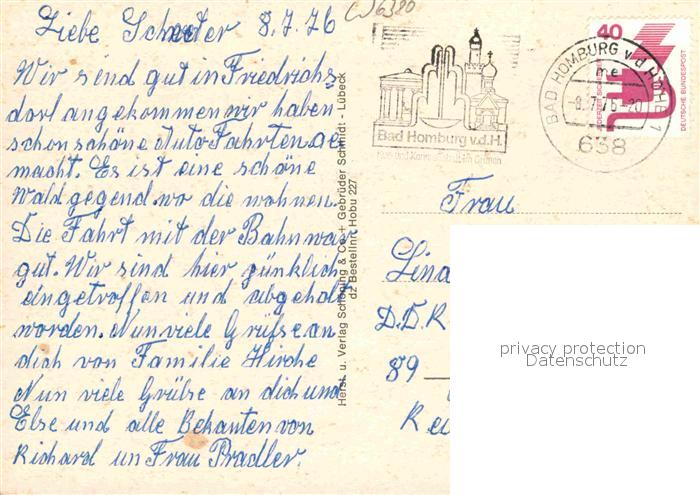 Liebe Schwester 8.7.76
Wir sind gut in Friedrichs
dorf angekommen wir haben
schon schöne Auto Fahrten ge
macht. Es ist eine schöne
Wald gegend wo die wohnen.
Die Fahrt mit der Bahn war
gut. Wir sind hier pünklich
eingetroffen und abgeholt
worden. Nun viele Grüße an
dich von Familie Hirche
Nun viele Grüße an dich und
Else und alle Bekanten von
Richard un Frau Pradler.
Herst. u. Verlag Schöning & Co + Gebrüder Schmidt - Lübeck
dz Bestellnr. Hobu 227
W6380
Bad Homburg v.d.H.
BAD HOMBURG v d HÖHE 1
me
-8.7.76-20
638
40
DEUTSCHE BUNDESPOST
Frau
Lina
D.D.R
89
privacy protection
Datenschutz